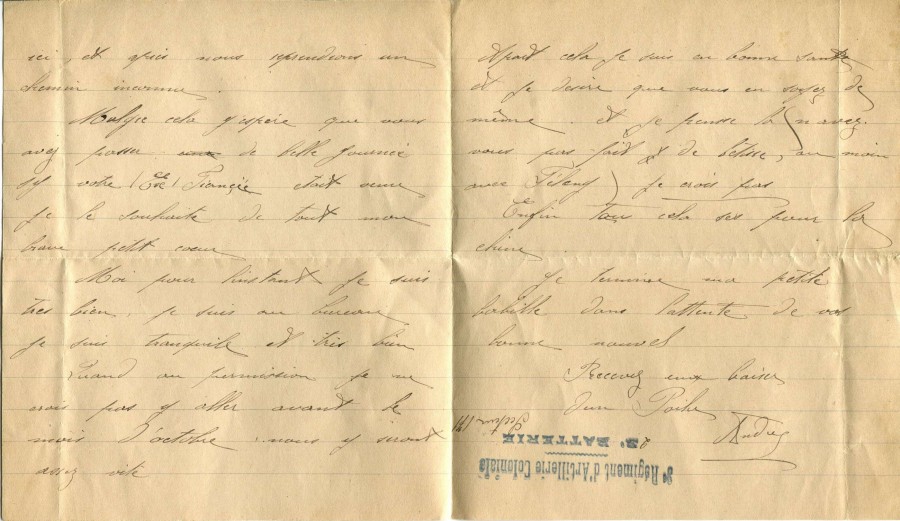 ici, et puis nous reprendrons un
chemin inconnu.
Malgre cela j'espere que vous
avez passer de belle journee
si votre Fiançée etait venue
je le souhaite de tout mon
brave petit coeur
Moi pour linstant je suis
tres bien. je suis au bureau
je suis tranquile et tres bien
Quand au permission je ne
crois pas y aller avant le
mois d'octobre. nous y seront
assez vite
Apart cela je suis en bonne santé
et je desire que vous en soyez de
même. et je pense la n'avez
vous pas fait de bétise, au moin
avec je crois pas
Enfin tous cela ses pour la
chine
Je termine ma petite
babille dans l'attente de vos
bonne nouvel
Recevez baiser
d'un Poilu
André
3e Régiment d'Artillerie Coloniale
2e BATTERIE